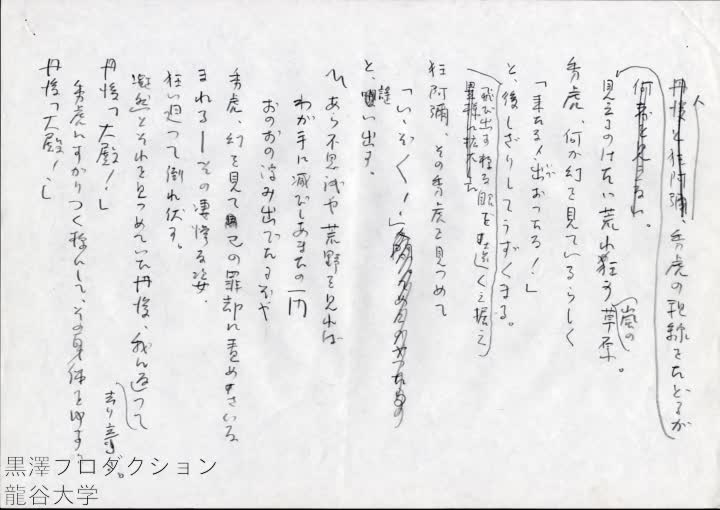 丹後と狂阿彌、秀虎の視線をたどるが
何者も見えない。
見えるのはただ荒れ狂う嵐の草原。
秀虎、何か幻を見ているらしく
「来たな！出おったな！」
と、後しざりしてうずくまる。
飛び出す程る眼を遠くに据え
狂阿彌、その秀虎を見つめて
「いゝぞく！」
と、謡い出す。
〽あら不思議や荒野を見れば
わが手に滅びしあまたの一門
おのおの浮み出でたるぞや
秀虎、幻を見て己の罪却に責めさいな
まれる——その凄惨な姿、
狂い廻って倒れ伏す。
凝然とそれを見つめていた丹後、我に返って
丹後「大殿！」
走り寄る。
秀虎にすがりつく様にして、その身体をゆする
丹後「大殿！」
黒澤プロダクション
龍谷大学